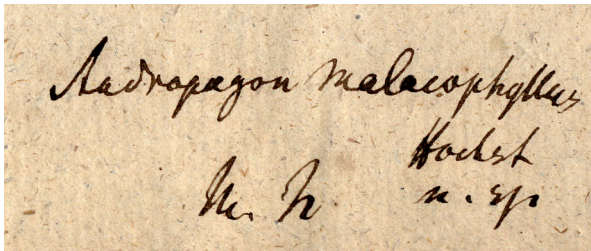 Andropogon malacophyllus
Hochst
n. sp